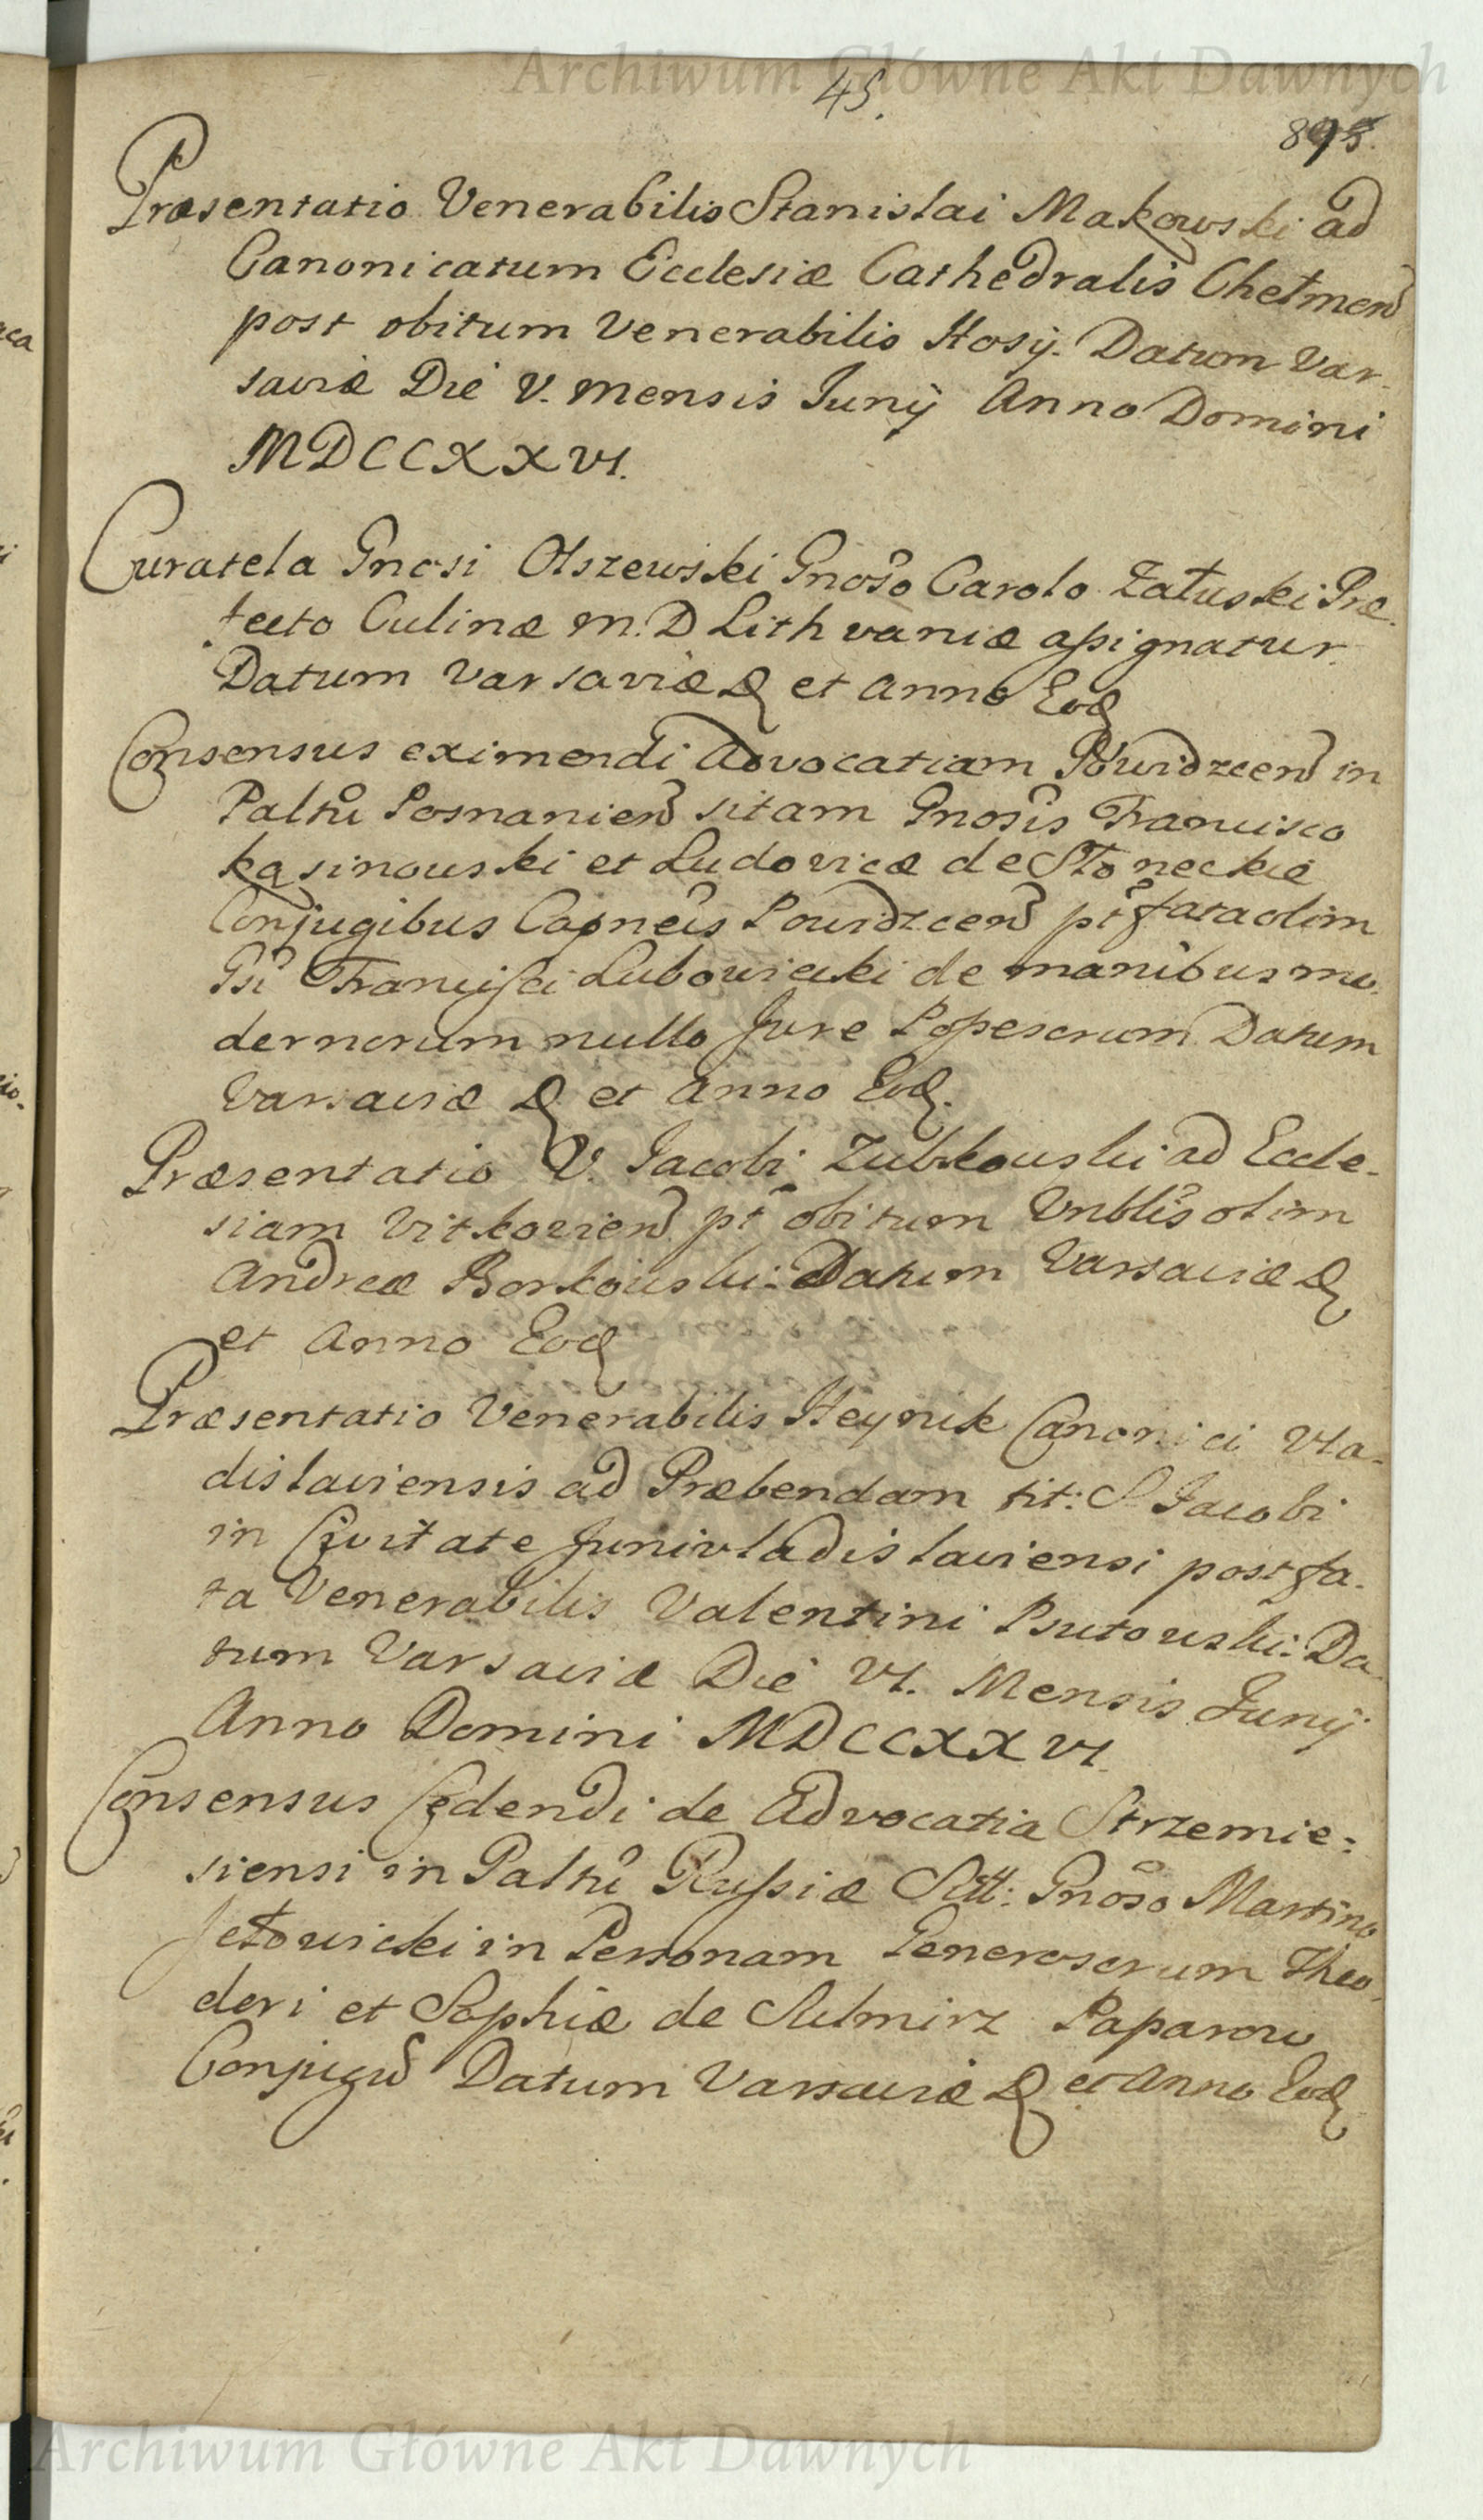 Archiwum Główne Akt Dawnych
45.
Præsentatio Venerabilis Stanislai Makowski ad
Canonicatum Ecclesiæ Cathedralis Chełmen
post obitum Venerabilis Hosij. Datum Var-
saviæ Die V. Mensis Junij Anno Domini
MDCCXXVI.
Curatela Gnosi Olszewski Gnoso Carolo Załuski Præ-
fecto Culinæ M. D Lithvaniæ assignatur.
Datum Varsaviæ D et Anno Eod
Consensus eximendi Advocatiam Powidzcen in
Paltu Posnanien sitam Gnosis Francisco
Kąsinowski et Ludovicæ de Słoneckie
Conjugibus Capneis Powidzcen pt fata olim
Gsi Francisci Lubowiecki de manibus mo-
dernorum nullo Jure Possessorum Datum
Varsaviæ D et Anno Eod.
Præsentatio V. Jacobi Zubkowski ad Eccle-
siam Vitkovien pt obitum Vnblis olim
Andreæ Borkowski: Datum Varsaviæ D
et Anno Eod
Præsentatio Venerabilis Heynik Canonici Vla-
dislaviensis ad Præbendam tit: S Jacobi
in Civitate Junivladislaviensi post fa-
ta Venerabilis Valentini Psutowski: Da-
tum Varsaviæ Die VI. Mensis Junij
Anno Domini MDCCXXVI.
Consensus Cedendi de Advocatia Strzemie-
siensi in Paltu Russiæ Sitt: Gnoso Martino
Jełowicki in Personam Generosorum Theo-
dori et Sophiæ de Paparow
Conjugu Datum Varsaviæ D et Anno Eod
Archiwum Główne Akt Dawnych